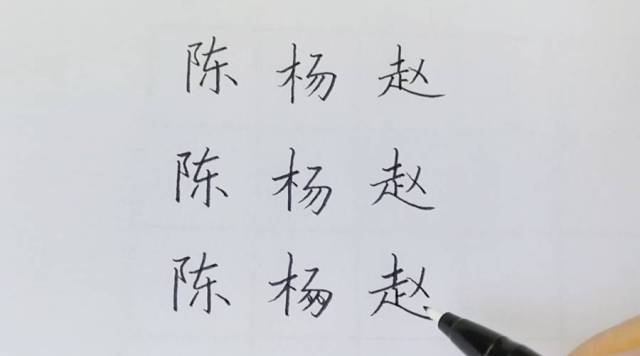 陈 杨 赵
陈 杨 赵
陈 杨 赵